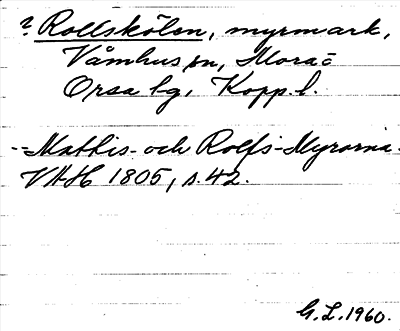 ? Rollskölen, myrmark,
Våmhus sn, Mora o
Orsa tg, Kopp. l.
--Mattis- och Rolfs-Myrorna.
VAH 1805, s. 42.
G. L. 1960.